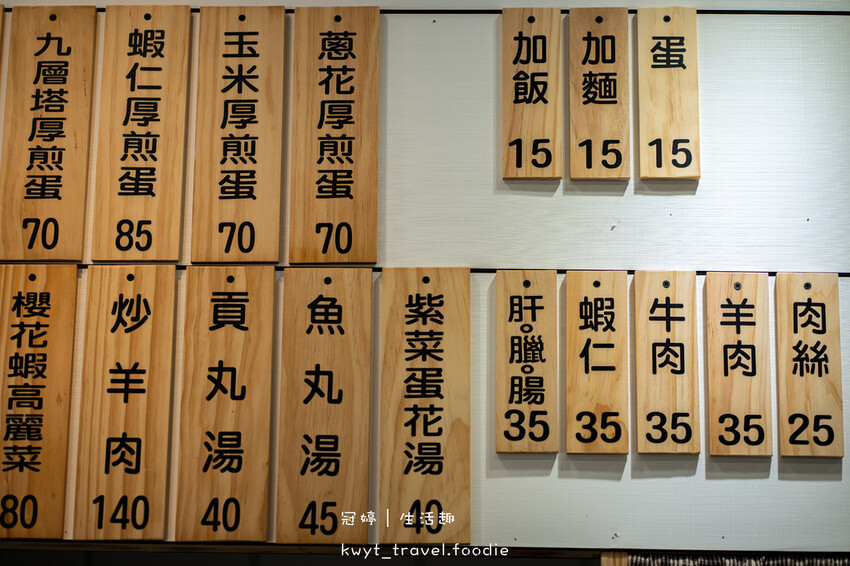 九層塔厚煎蛋
70
蝦仁厚煎蛋
85
玉米厚煎蛋
70
蔥花厚煎蛋
70
加飯
15
加麵
15
蛋
15
櫻花蝦高麗菜
80
炒羊肉
140
貢丸湯
40
魚丸湯
45
紫菜蛋花湯
40
肝。臘。腸
35
蝦仁
35
牛肉
35
羊肉
35
肉絲
25
冠婷｜生活趣
kwyt_travel.foodie